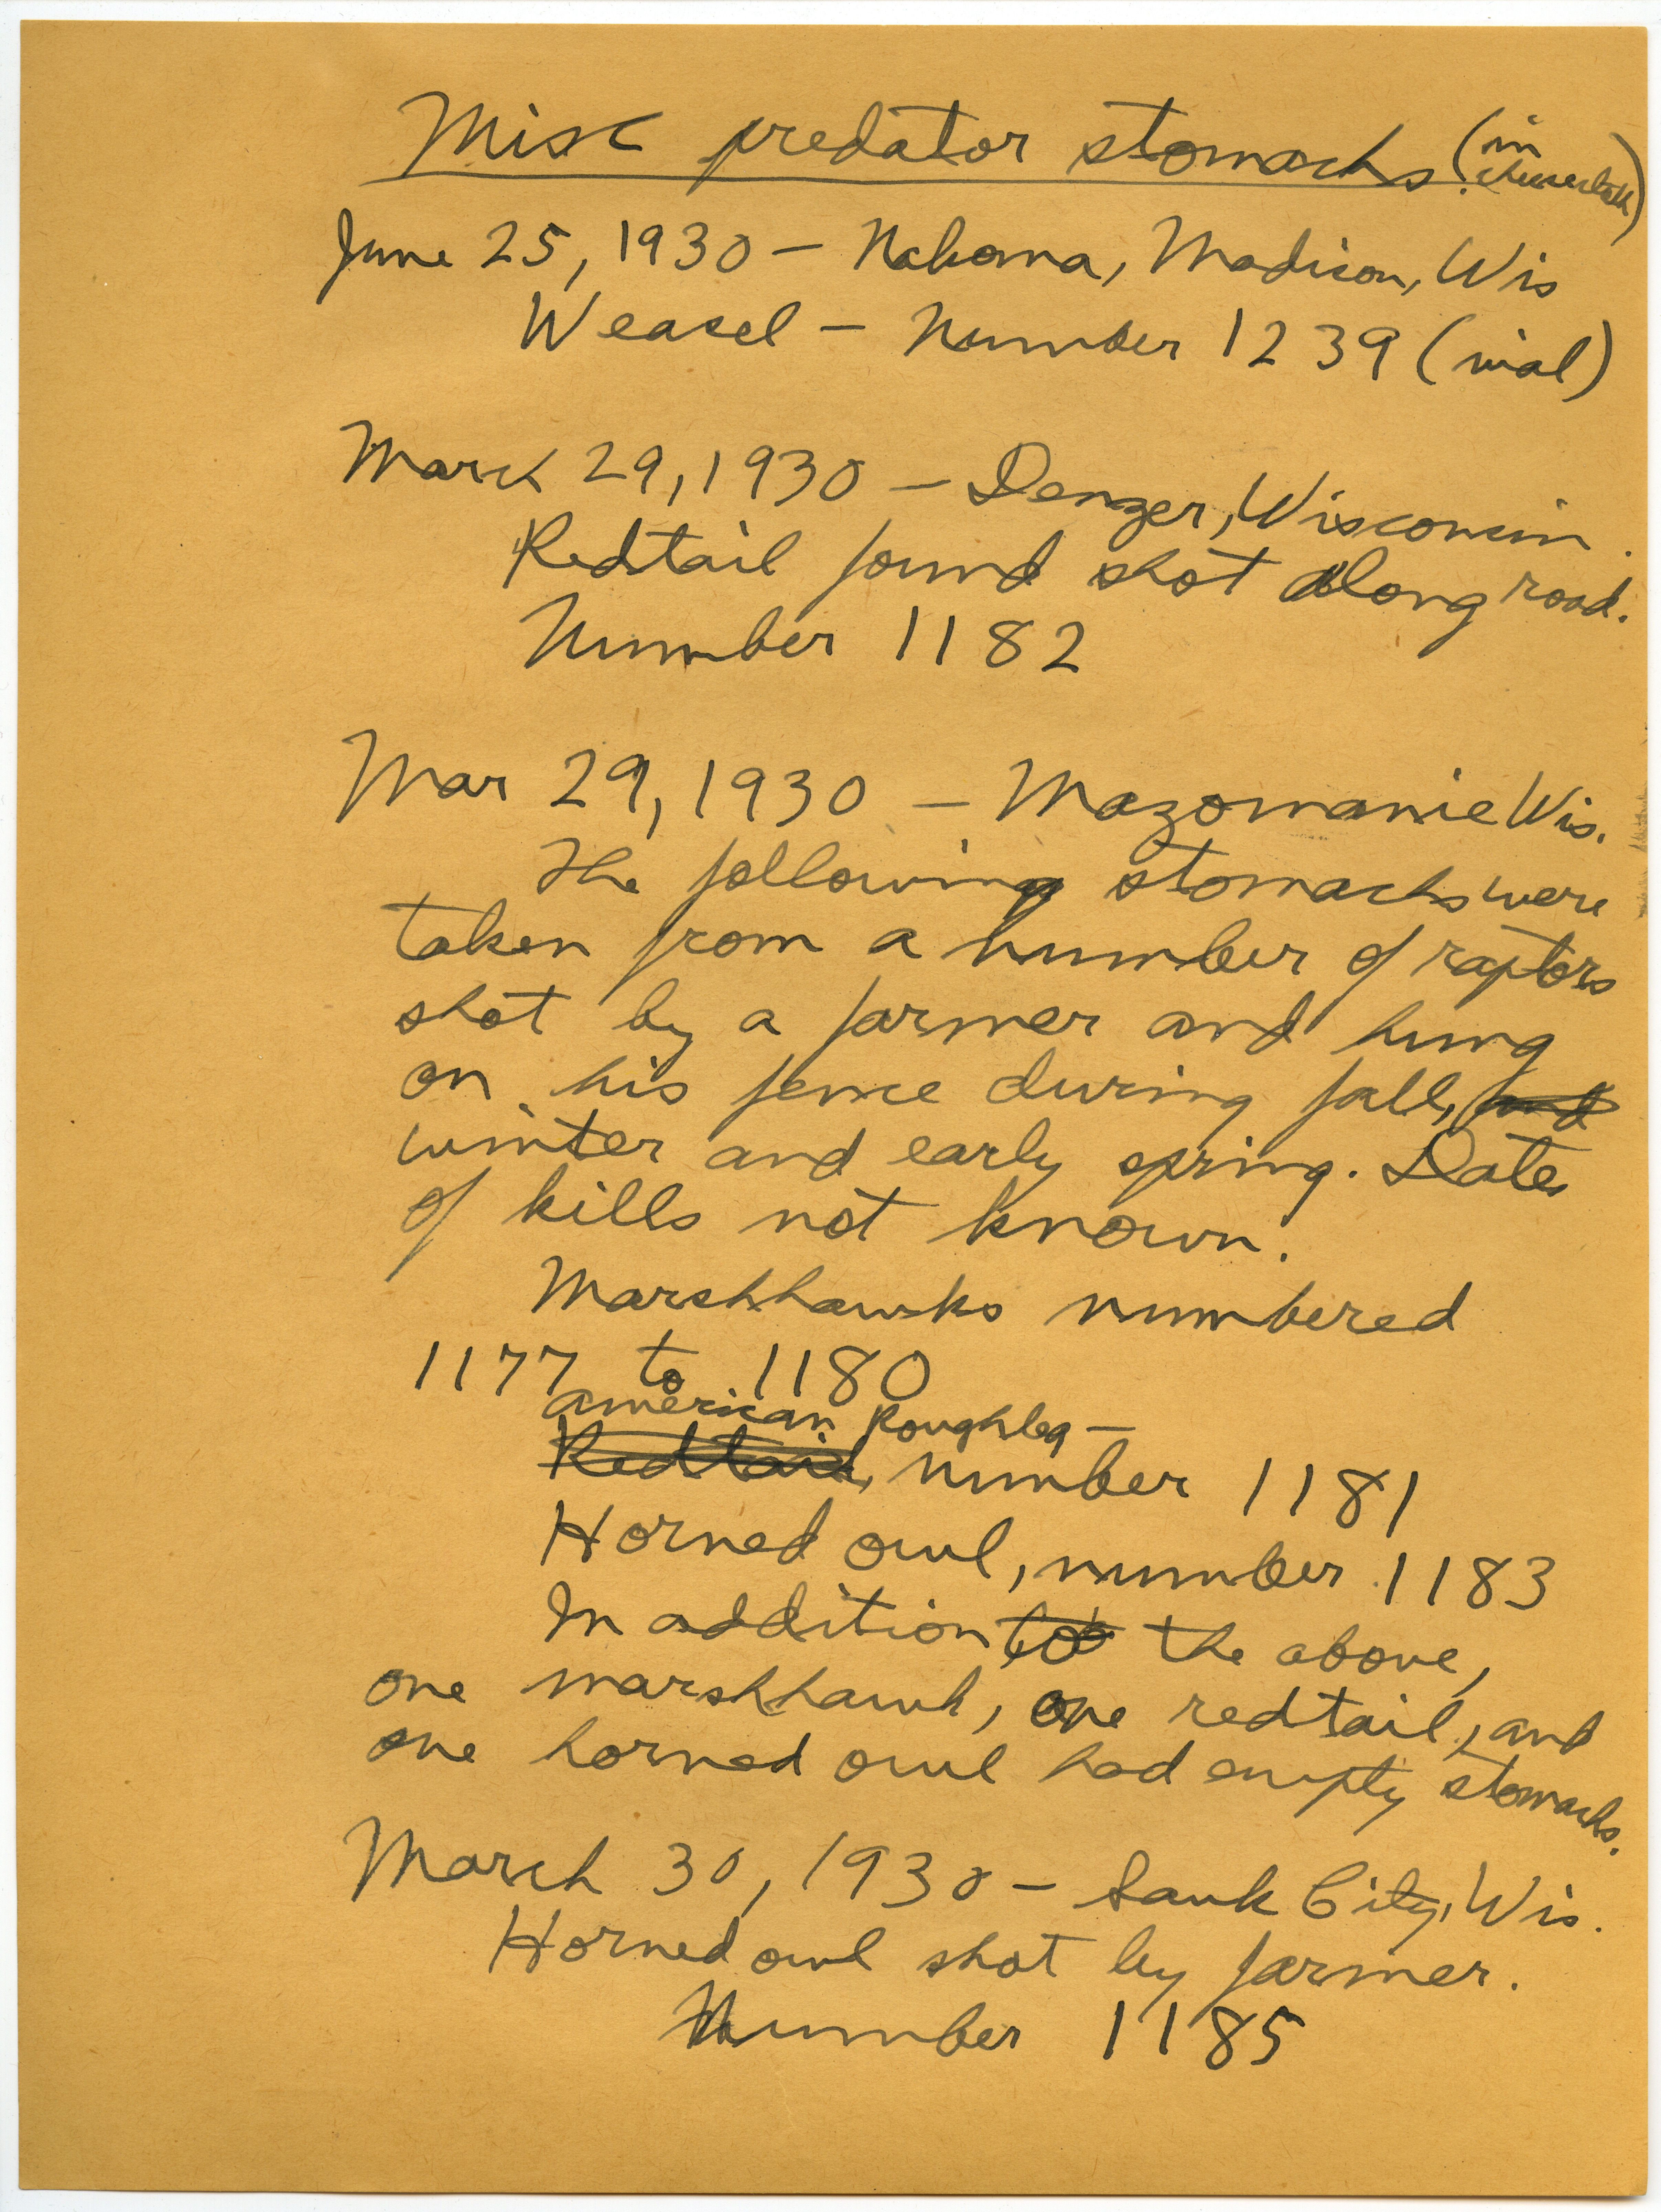 Misc predator stomachs (in cheesecloth)
June 25, 1930 – Nakoma, Madison, Wis
Weasel – Number 1239 (vial)
March 29, 1930 – Denzer, Wisconsin.
Redtail found shot along road.
Number 1182
Mar 29, 1930 – Mazomanie Wis.
The following stomachs were
taken from a number of raptors
shot by a farmer and hung
on his fence during fall, and
winter and early spring. Dates
of kills not known.
Marshhawks numbered
1177 to 1180
American Roughleg –
Redtail, number 1181
Horned owl, number 1183
In addition to the above,
one marshhawk, one redtail, and
one horned owl had empty stomachs.
March 30, 1930 – Sauk City, Wis.
Horned owl shot by farmer.
Number 1185